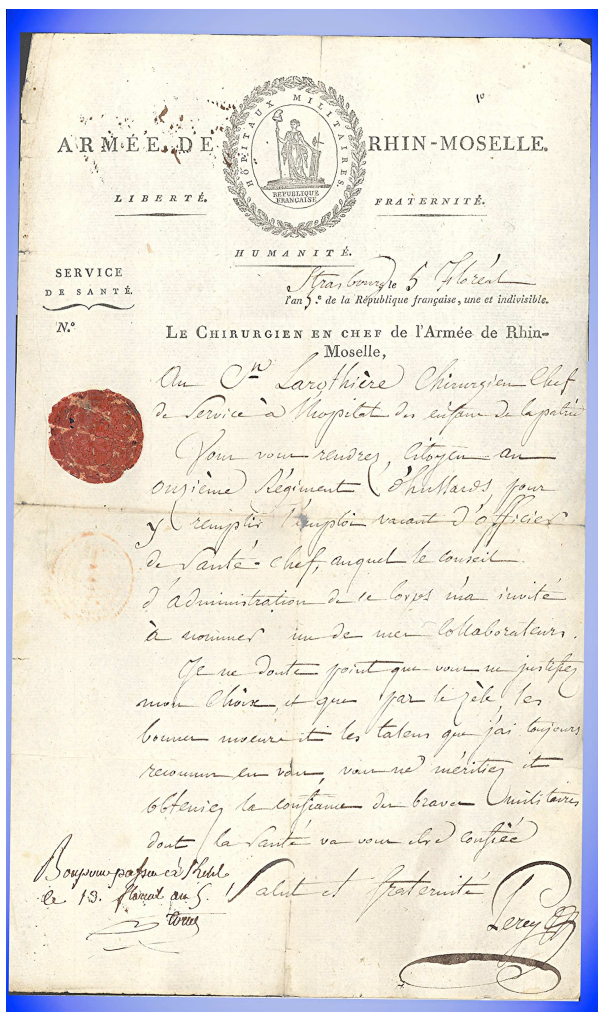 HÔPITAUX MILITAIRES.
ARMÉE DE RHIN-MOSELLE.
RÉPUBLIQUE
FRANÇAISE
LIBERTÉ. FRATERNITÉ.
HUMANITÉ.
SERVICE
DE SANTÉ.
N.º
Strasbourg le 5 Floréal
l'an 5.e de la République française, une et indivisible.
LE CHIRURGIEN EN CHEF de l'Armée de Rhin-
Moselle,
Au Cn Larothière Chirurgien Chef
de Service à l'hopital des enfans de la patrie
Vous vous rendrez, Citoyen au
onzième Régiment d'hussards pour
y remplir l'emploi vacant d'officier
de Santé-chef, auquel le conseil
d'administration de ce Corps m'a invité
à nommer un de mes Collaborateurs.
Je ne doute point que vous ne justifiez
mon Choix et que par le zèle, les
bonnes moeurs et les talens que j'ai toujours
reconnu en vous, vous ne méritiez et
obteniez la confiance des braves militaires
dont la Santé va vous être confiée
Salut et fraternité
Percy
Bon pour passer à Kehl
le 13. floreal an 5.